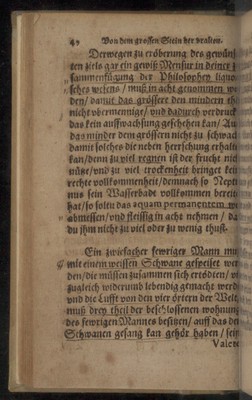 42 Von dem grossen Stein der uralten.
Derwegen zu eröberung des gewünsch
ten ziels gar ein gewiß Mensur in deiner z
sammenfügung der Philosophey liquo
sches wesens / muß in acht genommen we
den / damit das grössere den mindern th
nicht übermennige / und dadurch verdruck
das kein auffwachsung geschehen kan / Au
das minder dem grössern nicht zu schwach
damit solches die neben herrschung erhalte
kan / denn zu viel regnen ist der frucht nicht
nütze / und zu viel trockenheit bringet kein
rechte vollkommenheit / demnach so Nept
nus sein Wasserbadt vollkommen bereit
hat / so soltu das aquam permanentem wo
abmessen / und fleissig in acht nehmen / da
du ihm nicht zu viel oder zu wenig thust.
Ein zwiefacher fewriger Mann muß
mit einem weissen Schwane gespeiset wer
den / die müssen zusammen sich ertödten / und
zugleich widerumb lebendig gemacht werd
und die Lufft von den vier örtern der Welt
muß drey theil der beschlossenen wohnung
des fewrigen Mannes besitzen / auff das der
Schwanen gesang kan gehör haben / sein
Valete